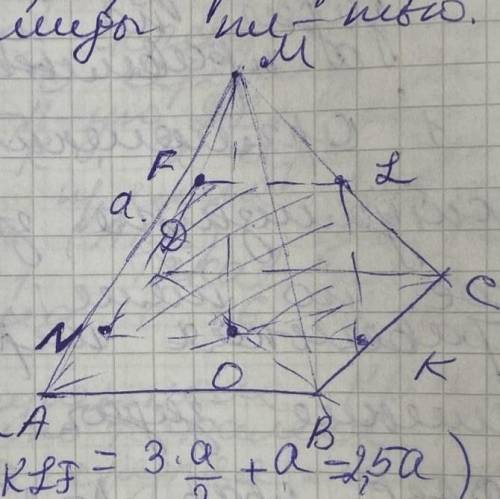 миды пл-тью.
M
F
L
a.
D
C
N
K
O
A
B
KLF = 3·a/2 + a = 2,5a)